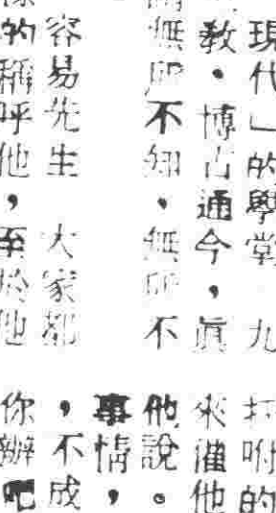 現代」的學堂 九
教・博古通今，眞
無所不知、無所不
容易先生 大家都
的稱呼他，至於他
咐的
來催他
他說。
事情，
，不成
你辦吧